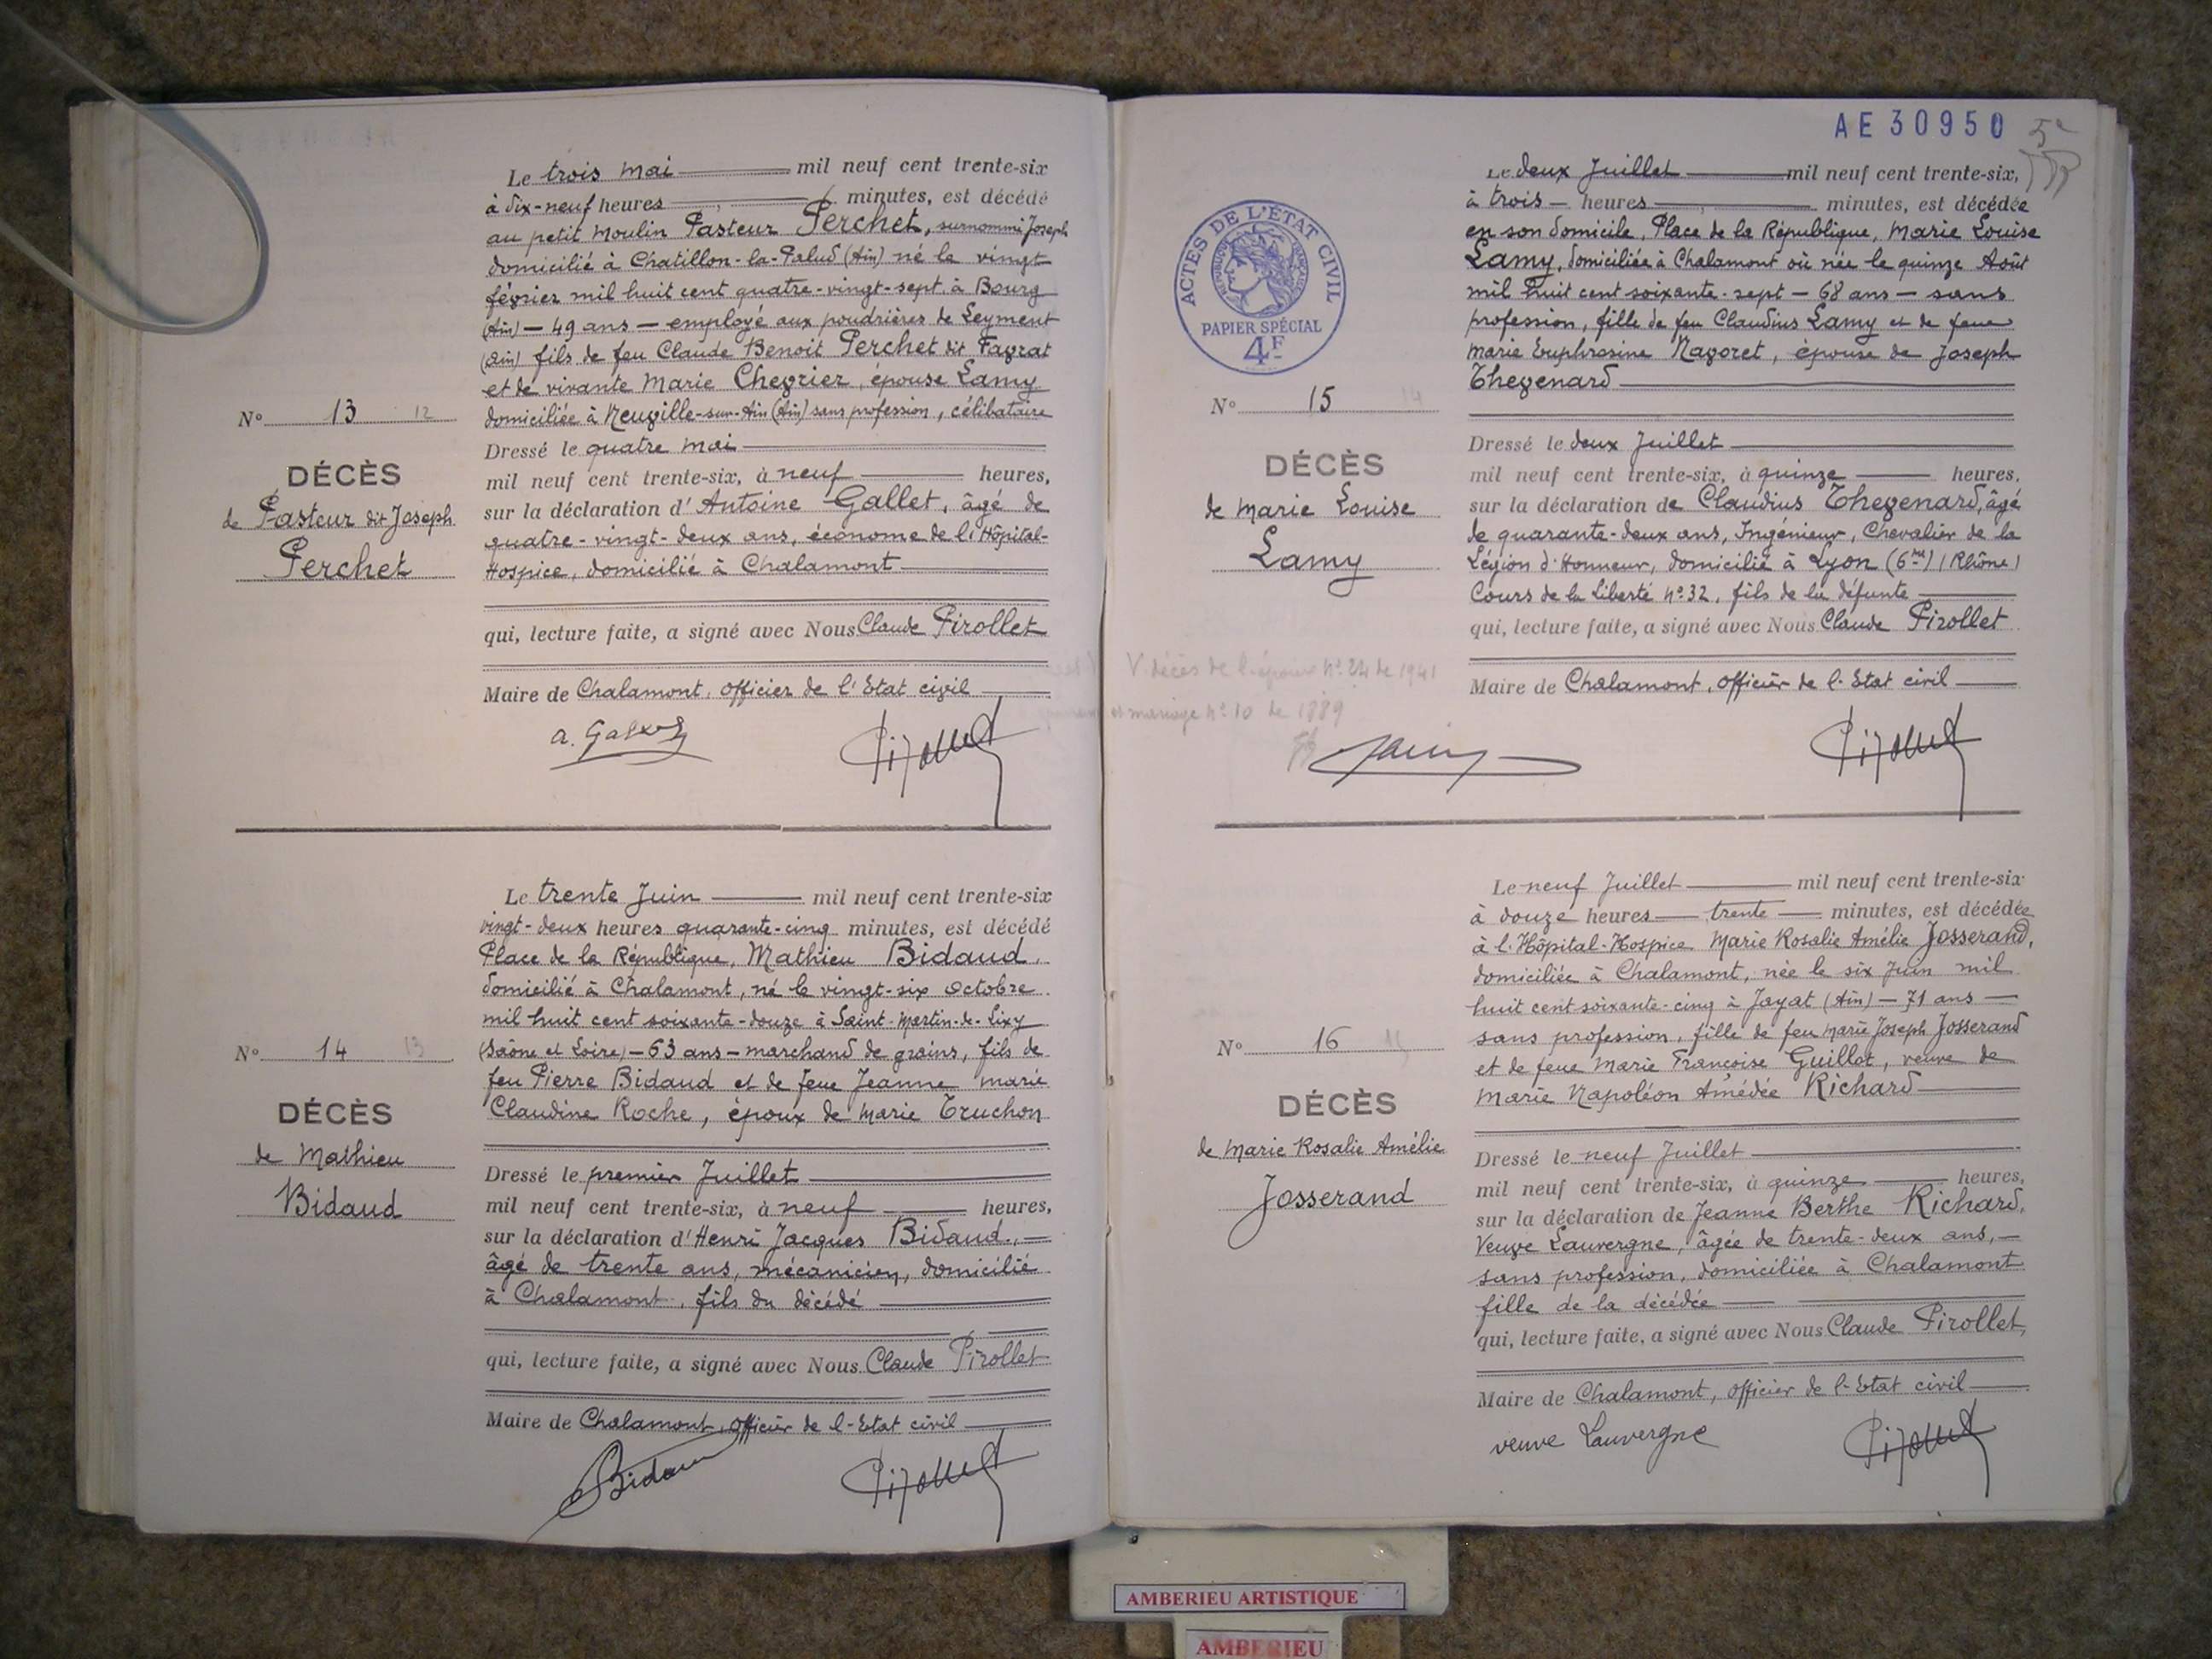 Le trois mai mil neuf cent trente-six
à dix-neuf heures minutes, est décédé
au petit Moulin Pasteur Perchet, surnommé Joseph
domicilié à Chatillon-la-Palud (Ain) né le vingt
février mil huit cent quatre-vingt-sept à Bourg
(Ain) — 49 ans — employé aux poudrières de Leyment
(Ain) fils de feu Claude Benoit Perchet dit Fayrat
et de vivante Marie Chevrier, épouse Lamy
domiciliée à Neuville-sur-Ain (Ain) sans profession, célibataire
N° 13 12
DÉCÈS
de Pasteur dit Joseph
Perchet
Dressé le quatre mai
mil neuf cent trente-six, à neuf heures,
sur la déclaration d'Antoine Gallet, âgé de
quatre-vingt-deux ans, économe de l'Hôpital-
Hospice, domicilié à Chalamont
qui, lecture faite, a signé avec Nous Claude Pirollet
Maire de Chalamont, officier de l'Etat civil
Le trente Juin mil neuf cent trente-six
vingt-deux heures quarante-cinq minutes, est décédé
Place de la République, Mathieu Bidaud,
domicilié à Chalamont, né le vingt-six Octobre
mil huit cent soixante-douze à Saint-Martin-de-Lixy
(Saône et Loire) — 63 ans — marchand de grains, fils de
feu Pierre Bidaud et de feue Jeanne Marie
Claudine Roche, époux de Marie Truchon
N° 14 13
DÉCÈS
de Mathieu
Bidaud
Dressé le premier Juillet
mil neuf cent trente-six, à neuf heures,
sur la déclaration d'Henri Jacques Bidaud,
âgé de trente ans, mécanicien, domicilié
à Chalamont, fils du décédé
qui, lecture faite, a signé avec Nous Claude Pirollet
Maire de Chalamont, officier de l'Etat civil
Bidaud
AE 30950
ACTES DE L'ÉTAT CIVIL
PAPIER SPÉCIAL
4F
Le deux Juillet mil neuf cent trente-six,
à trois heures minutes, est décédée
en son domicile, Place de la République, Marie Louise
Lamy, domiciliée à Chalamont où née le quinze Août
mil huit cent soixante-sept — 68 ans — sans
profession, fille de feu Claudius Lamy et de feue
Marie Euphrosine Nagoret, épouse de Joseph
Thevenard
N° 15 14
DÉCÈS
de Marie Louise
Lamy
Dressé le deux Juillet
mil neuf cent trente-six, à quinze heures,
sur la déclaration de Claudius Thevenard, âgé
de quarante-deux ans, Ingénieur, Chevalier de la
Légion d'Honneur, domicilié à Lyon (6me) (Rhône)
Cours de la Liberté n° 32, fils de la défunte
qui, lecture faite, a signé avec Nous Claude Pirollet
V. décès de l'époux n° 24 de 1941
et mariage n° 10 de 1889
Maire de Chalamont, officier de l'Etat civil
Le neuf Juillet mil neuf cent trente-six
à douze heures trente minutes, est décédée
à l'Hôpital-Hospice Marie Rosalie Amélie Josserand,
domiciliée à Chalamont, née le six Juin mil
huit cent soixante-cinq à Jayat (Ain) — 71 ans —
sans profession, fille de feu Marie Joseph Josserand
et de feue Marie Françoise Guillot, veuve de
Marie Napoléon Amédée Richard
N° 16
DÉCÈS
de Marie Rosalie Amélie
Josserand
Dressé le neuf Juillet
mil neuf cent trente-six, à quinze heures,
sur la déclaration de Jeanne Berthe Richard,
Veuve Lauvergne, âgée de trente-deux ans,
sans profession, domiciliée à Chalamont
fille de la décédée
qui, lecture faite, a signé avec Nous Claude Pirollet,
Maire de Chalamont, officier de l'Etat civil
veuve Lauvergne
AMBERIEU ARTISTIQUE
AMBERIEU